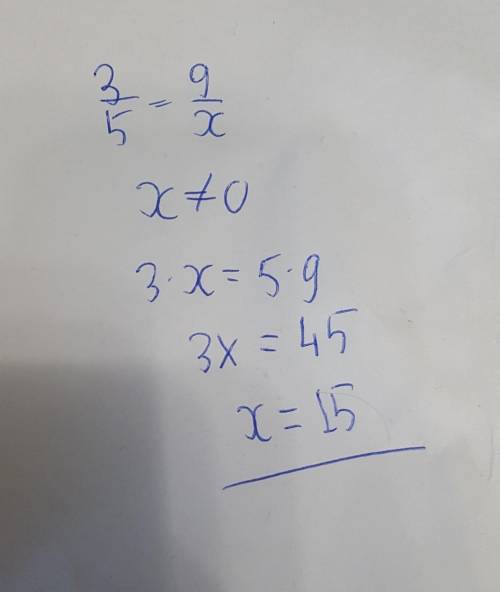 3/5 = 9/x
x ≠ 0
3 · x = 5 · 9
3x = 45
x = 15